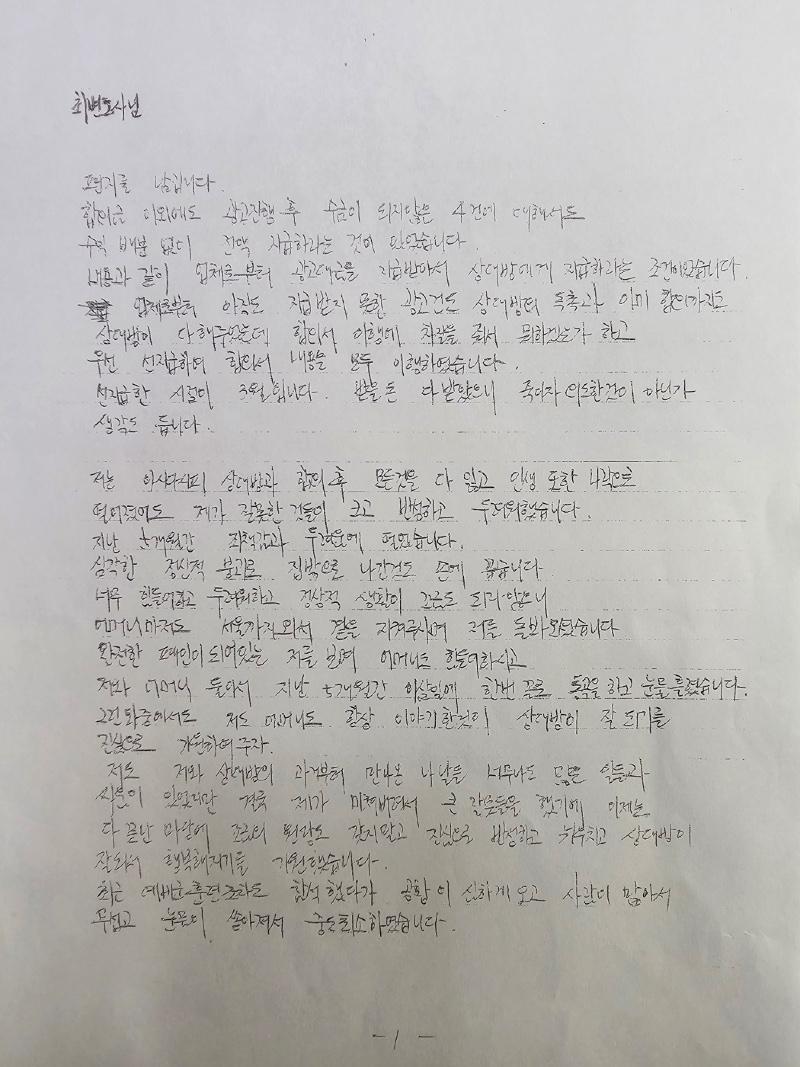 최변호사님
편지를 남깁니다.
합의금 이외에도 광고진행 후 수금이 되지않은 4건에 대해서도
수익 배분 없이 전액 지급하라는 것이 있었습니다.
내용과 같이 업체로부터 광고대금을 지급받아서 상대방에게 지급하라는 조건이었습니다.
업체로부터 아직도 지급받지 못한 광고건도 상대방의 독촉과 이미 합의까지도
상대방이 다 해주었는데 합의서 이행에 차질을 줘서 뭐하겠는가 하고
우선 선지급하여 합의서 내용을 모두 이행하였습니다.
선지급한 시점이 3월입니다. 받을 돈 다 받았으니 죽이자 의도한것이 아닌가
생각도 듭니다.
저는 아시다시피 상대방과 합의 후 모든것을 다 잃고 인생 또한 나락으로
떨어졌어도 제가 잘못한 것들이 크고 반성하고 두려워했습니다.
지난 5개월간 죄책감과 두려움에 떨었습니다.
심각한 정신적 붕괴로 집밖으로 나간건도 손에 꼽습니다
너무 힘들어하고 두려워하고 정상적 생활이 조금도 되지않으니
어머니마저도 서울까지와서 곁을 지켜주시며 저를 돌봐왔었습니다
완전한 폐인이되어있는 저를 보며 어머니도 힘들어하시고
저와 어머니 둘이서 지난 5개월간 이삼일에 한번 꼴로 통곡을 하고 눈물을 흘렸습니다.
그런 와중에서도 저도 어머니도 항상 이야기한것이 상대방이 잘 되기를
진심으로 기원하여 주자.
저도 저와 상대방의 과거부터 만나온 나날들 너무나도 많은 일들과
사연이 있었지만 결국 제가 미쳐버려서 큰 잘못들을 했기에 이제는
다 끝난 마당에 조금의 원망도 갖지말고 진심으로 반성하고 뉘우치고 상대방이
잘되서 행복해지기를 기원했습니다.
최근 예비군훈련조차도 참석했다가 공황이 심하게 오고 사람이 많아서
무섭고 눈물이 쏟아져서 중도퇴소하였습니다.
- 1 -